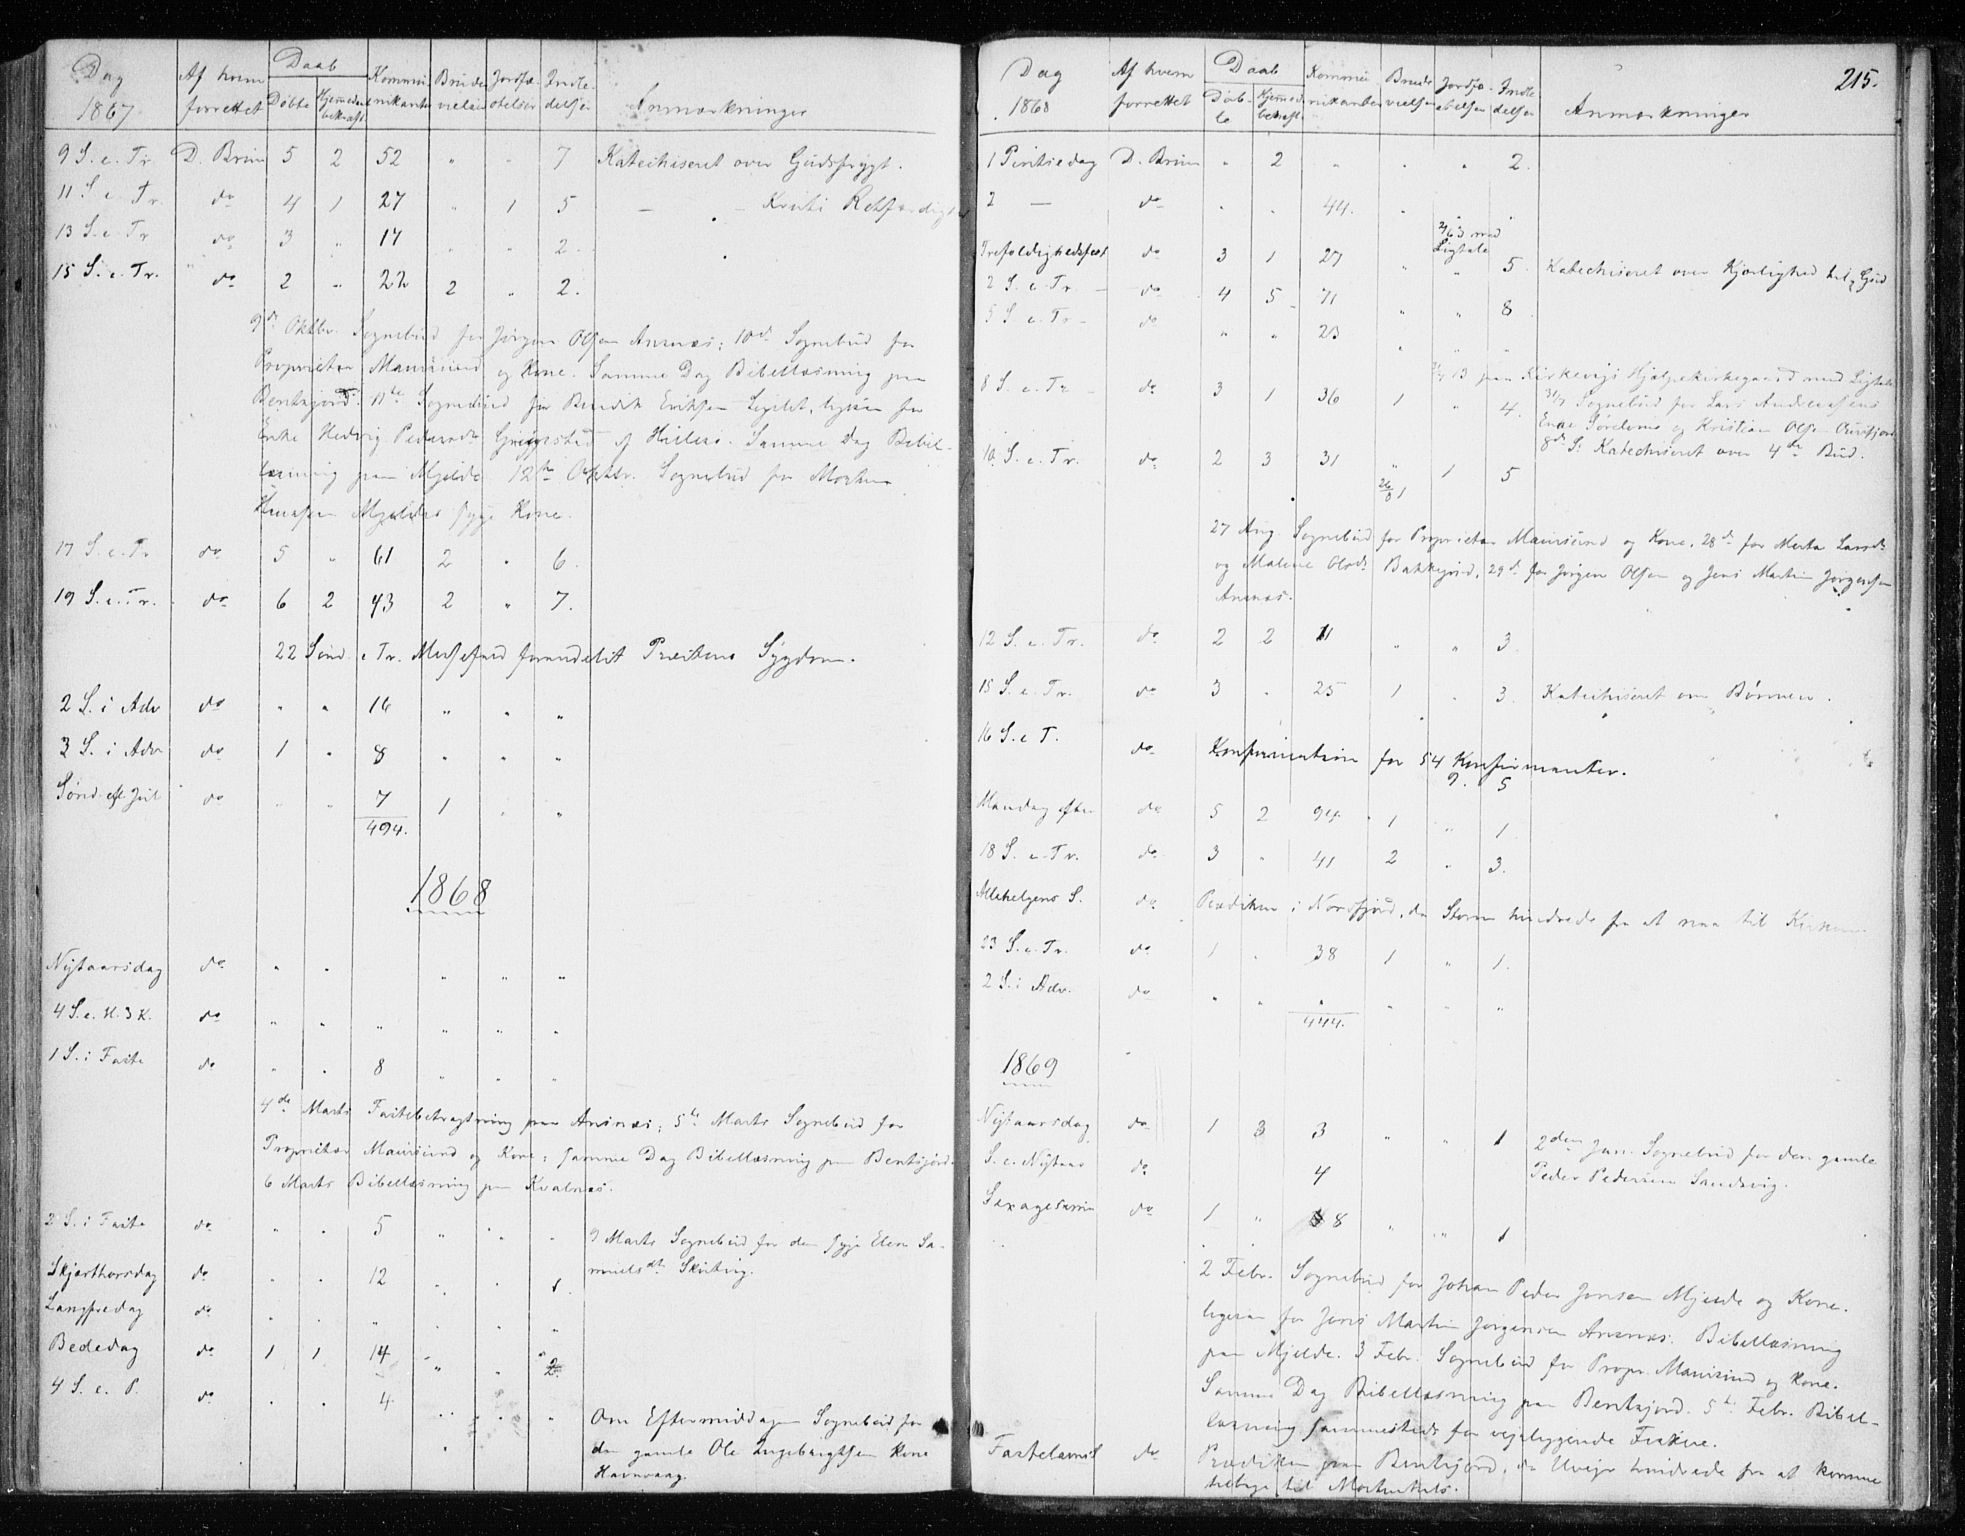 Dag 1867 | Af hvem forrettet | Daab | Døbte | Hjemmedøbt bekræft | Kommunikanter | Brudevielser | Jordfæstelser | Indledelser | Anmærkninger
9 S. e. Tr. D. Brun 5 2 52 " " 7 Katechiseret over Gudsfrygt.
11 S. e. Tr. do 4 1 27 " 1 5 — — Kristi Retfærdighed
13 S. e. Tr. do 3 " 17 " " 2.
15 S. e. Tr. do 2 " 22 2 " 2.
9de Oktbr. Sognebud for Jørgen Olsen Ansnæs; 10de Sognebud for
Proprietær Maursund og Kone. Samme Dag Bibellæsning paa
Bentsjord. 11te Sognebud for Bendik Eriksen ligesaa for
Enke Hedvig Pedersdt. af Hillesø. Samme Dag Bibel-
læsning paa Mjelde. 12te Oktbr. Sognebud for Morten
Hansen Mjeldes syge Kone.
17 S. e. Tr. do 5 " 61 2 " 6.
19 S. e. Tr. do 6 2 43 2 " 7.
22 Sønd. e. Tr. Messefald formedelst Præstens Sygdom.
2 S. i Adv do " " 16 " " "
3 S. i Adv do 1 " 8 " " "
Sønd. eft. Jul do " " 7 1 " "
494.
1868
Nytaarsdag do " " " " "
4 S. e. H. 3 K. do " " " " " "
1 S. i Faste do " " 8 " " "
4de Marts Fastebetragtning paa Ansnæs; 5te Marts Sognebud for
Proprietær Maursund og Kone; samme Dag Bibellæsning paa Bentsjord.
6 Marts Bibellæsning paa Kvalnæs.
2 S. i Faste do " " 5 " " " 9 Marts Sognebud for den syge Elen Sa-
muelsdt. Skutvig.
Skjærthorsdag do " " 12 " " 1.
Langfredag do " " " " " "
Bededag do 1 1 14 " " 2.
4 S. e. P. do " " 4. " " " Om Eftermiddagen Sognebud for
den gamle Ole Ingebrigtsens Kone
Havnvaag.
215.
Dag 1868 | Af hvem forrettet | Daab | Døbte | Hjemmed. bekræft. | Kommunikanter | Brudevielser | Jordfæstelser | Indledelser | Anmærkninger
1 Pintsedag D. Brun " 2 " " " 2.
2 — do " " 44. " " "
2/6 3 med Ligtale
Trefoldighedsfest do 3 1 27 " " 5. Katechiseret over Kjærlighed til Gud
2 S. e. Tr. do 4 5 71 " " 8
5 S. e. Tr. do " " 23 " " "
13 paa Kirkevigs Hjælpekirkegaard med Ligtale
8 S. e. Tr. do 3 1 36 1 " 4. 31/7 Sognebud for Lars Andreasens
Enke og Kristian Olsen
8de S. Katechiseret over 4de Bud.
10 S. e. Tr. do 2 3 31 " 1 5
26/8 1
27 Aug. Sognebud for Proprietær Maursund og Kone, 28de for Marta Larsdt.
og Malene Olsdt. Bakkejord, 29de for Jørgen Olsen og Jens Martin Jørgensen
Ansnæs.
12 S. e. Tr. do 2 2 11 " " 3.
15 S. e. Tr. do 3 " 25 1 " 3. Katechiseret om Bønnen.
16 S. e T. do Konfirmation for 54 Konfirmanter.
9. 5
Mandag efter do 5 2 94. 1 " 1.
18 S. e. Tr. do 3 " 41 2 " 3.
Allehelgens S. do Prædiken i Nordfjord, da Storm hindrede fra at naa til Kirken.
23 S. e. Tr. do 1 " 38 1 " 1.
2 S. i Adv. do " " " " " "
444.
1869
Nytaarsdag do 1 3 3 " " 1 2den Jan. Sognebud for den gamle
Peder Pedersen Sandvig.
S. e. Nytaar do 4
Sexagesima do 1 " 8 " " 1
2 Febr. Sognebud for Johan Peder Jonsen Mjelde og Kone.
ligesaa for Jens Martin Jørgensen Ansnæs. Bibellæsning
paa Mjelde. 3 Febr. Sognebud for Propr. Maursund og Kone.
Samme Dag Bibellæsning paa Bentsjord. 5te Febr. Bibel-
læsning sammesteds for vejrliggende Fiskere.
Fastelavns S do Prædiken paa Bentsjord, da Uvejr hindrede fra at komme
tilbage til